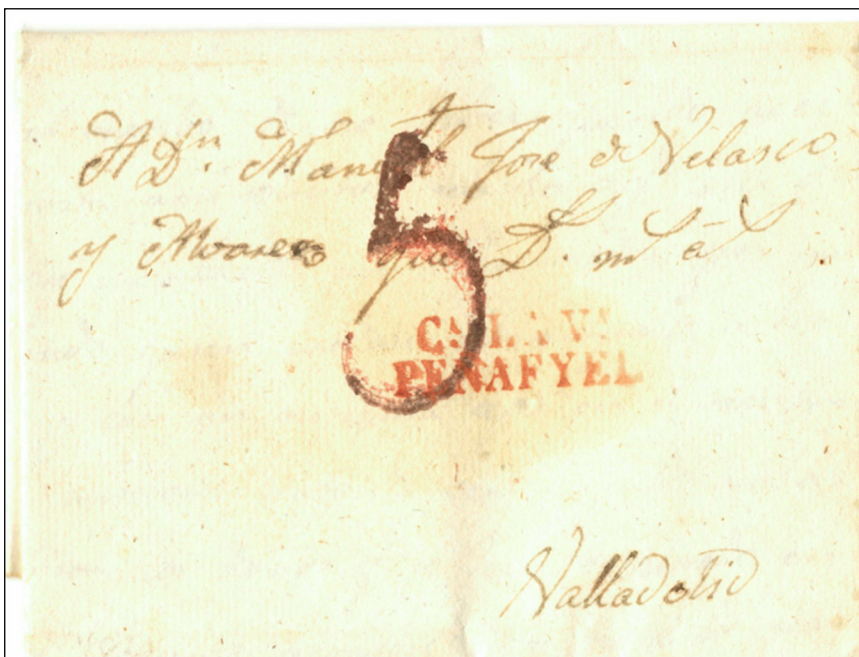 †
A Dn. Manuel Jose de Velasco
y Alvarez que Ds. ms. as.
5
CASLA VA
PEÑAFYEL
Valladolid